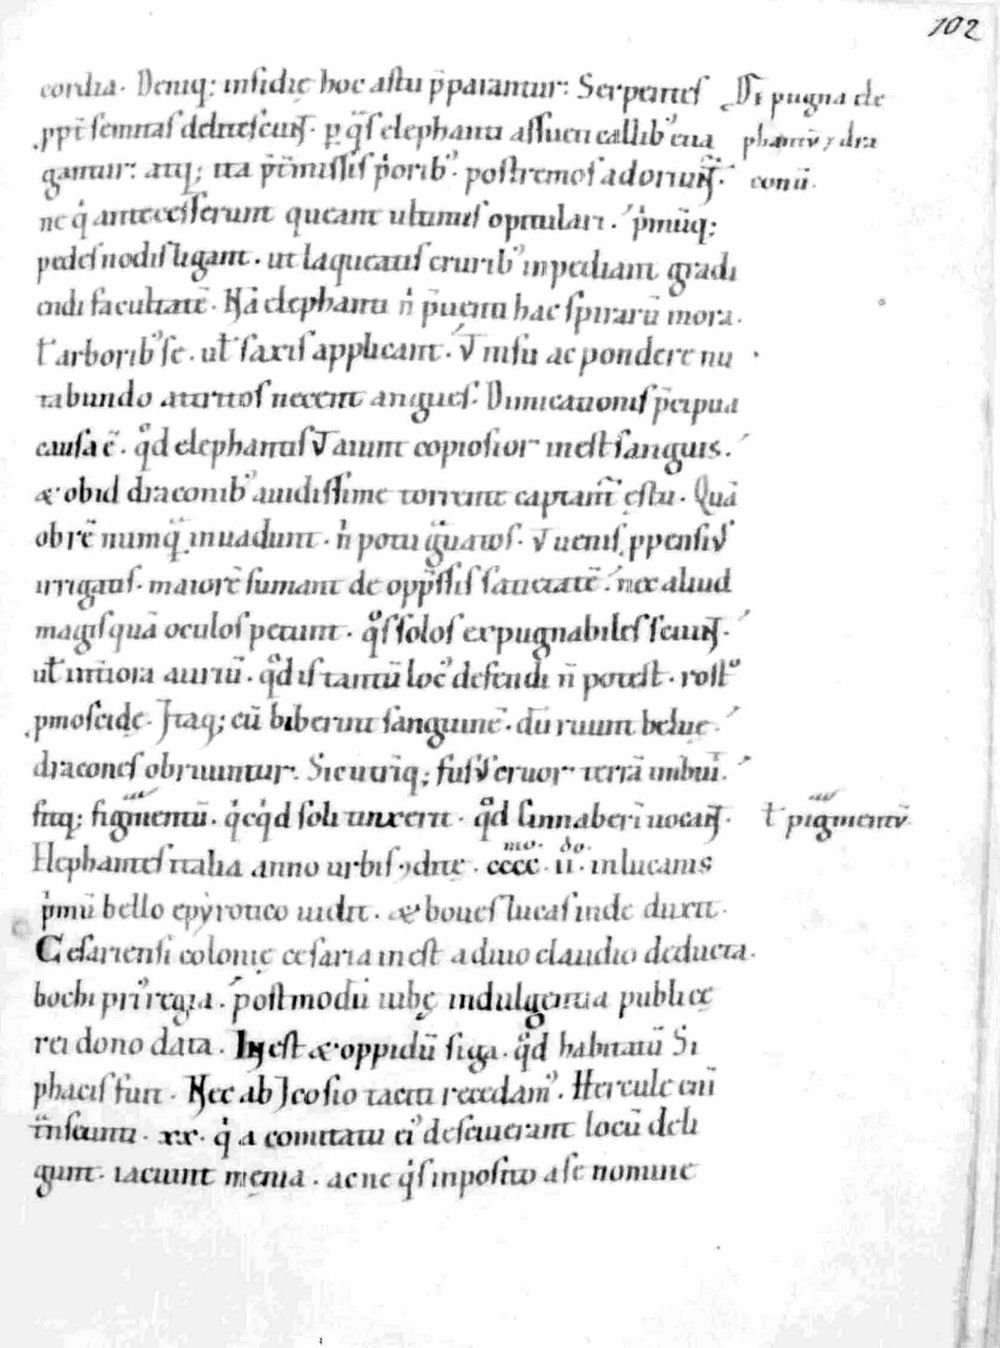 102
cordia. Deniq; insidię hoc astu p̄parantur: Serpentes
ꝓpt̄ semitas delitescunt̄. ꝑ qͣs elephanti assueti callib᾽ eua
gantur: atq; ita p̄t̄missis p̍orib᾽. postremos adoriunt̄.
ne q̍ antecesserunt queant ultimis opitulari. p̍mūq;
pedes nodis ligant. ut laqueatis crurib᾽ inpediant gradi
endi facultatē. Nā elephanti n̍ p̄uenti hac spirarū mora.
ł arborib᾽ se. uł saxis applicant. ѷ nisu ac pondere nu
tabundo attritos necent angues. Dimicationis p̄cipua
causa ē. qͦd elephantis ѷ aiunt copiosior inest sanguis.
& obid draconib᾽ auidissime torrente captant̄ ęstu. Quā
obrē numqͣ inuadunt. n̍ potu gͣuatos. ѷ uenis ꝓpensiѷ
irrigatis. maiorē sumant de opp̄ssis satietatē. nec aliud
magis quā oculos petunt. qͦs solos expugnabiles sciunt̄.
uł int̄iora auriū. qͦd is tantū loc᾽ defendi n̄ potest. rostͦ
ꝓmoscidę. Itaq; cū biberint sanguinē. dū ruunt beluę
dracones obruuntur. Sic utrīq; fusѷ cruor terrā imbuit̄.
fitq; figmentū. q̍cq̍d soli tinxerit. qͦd cinnaberī uocant̄.
Elephantes italia anno urbis ꝯditę. cccc. ii. in lucanis
p̍mū bello epyrotico uidit. & boues lucas inde dixit.
Cesariensi colonię cesaria inest a diuo claudio deducta.
bochi pri᾽ regia. postmodū iubę indulgentia publicę
rei dono data. Inest & oppidū siga. qͦd habitatū Si
phacis fuit. Nec ab Icosio taciti recedam᾽. Hercule enī
tͣnseunti. xx. q̍ a comitatu ei᾽ desciuerant locū deli
gunt. iaciunt męnia. ac ne q̍s inposito a se nomine
De pugna ele
phantū ⁊ dra
conū.
ł pigmentū.
mo. do.